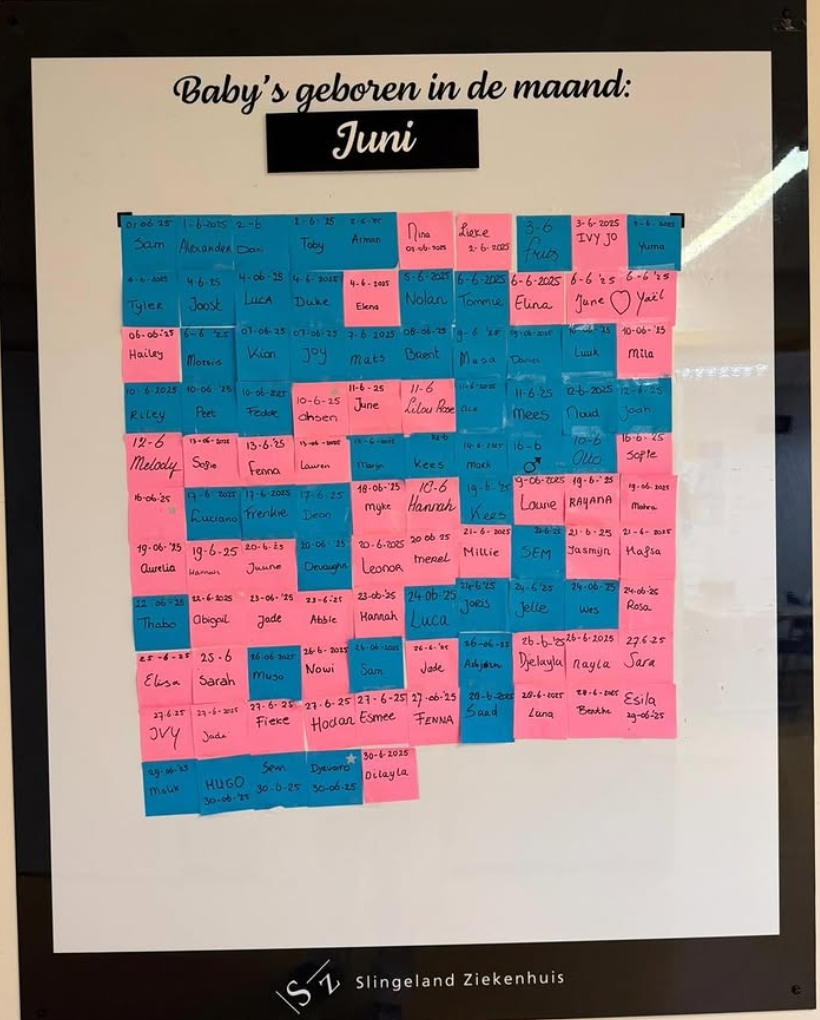 Baby's geboren in de maand:
Juni
01-06-25
Sam
1-6-2025
Alexander
2-6
Dani
2-6-25
Toby
2-6-'25
Arman
Nina
02-06-2025
Lieke
2-6-2025
3-6
Fritz
3-6-2025
IVY JO
Yuma
4-6-2025
Tyler
4-6-25
Joost
4-06-25
Luca
4-6-2025
Duke
4-6-2025
Elena
5-6-2025
Nolan
6-6-2025
Tommie
6-6-2025
Elina
6-6-'25
June ♡
6-6-'25
Yaël
06-06-'25
Hailey
6-6-'25
Morris
07-06-25
Kian
07-06-25
Joy
7-6-2025
Mats
08-06-25
Brent
9-6-'25
Musa
Daniel
10-6-25
Luuk
10-06-'25
Mila
10-6-2025
Riley
10-06-'25
Peet
10-06-2025
Fedde
10-6-25
11-6-25
June
11-6
Lilou Rose
11-6-25
Mees
12-6-2025
Noud
12-6-25
Joah
12-6
Melody
13-06-2025
Sofie
13-6-'25
Fenna
13-06-2025
Lauren
Kees
14-6-2025
16-6
♂
Otto
16-6-25
Sofie
16-06-'25
17-6-2025
Luciano
17-6-2025
Frenkie
17-6-25
Dean
18-06-'25
Myke
18-6
Hannah
19-6-'25
Kees
9-06-2025
Laurie
19-6-'25
RAYANA
19-06-2025
19-06-'25
Aurelia
19-6-25
Hannah
20-6-25
20-06-'25
Devaughn
20-6-2025
Leonor
20 06 25
Merel
21-6-2025
Millie
SEM
21-6-25
Jasmijn
21-6-2025
Hafsa
22 06-25
Thabo
22-6-2025
Abigail
23-06-'25
Jade
23-6-'25
Abbie
23-06-'25
Hannah
24-06-25
Luca
24-6-'25
Joris
24-6-'25
Jelle
24-06-25
Wes
24-06-'25
Rosa
25-6-25
Elisa
25-6
Sarah
26-06-2025
26-6-2025
Nowi
26-06-2025
Sam
26-6-'25
Jade
26-06-25
26-6-'25
Djelayla
26-6-2025
Nayla
27.6.25
Sara
27.6.25
IVY
27-6-2025
Jade
27-6-25
Fieke
27-6-25
Hodan
27-6-25
Esmee
27-06-'25
FENNA
28-6-2025
Saad
28-6-2025
Luna
28-6-2025
Benthe
Esila
29-06-'25
29-06-'25
Malik
HUGO
30-06-'25
Sem
30-6-25
30-06-25
30-6-2025
Dilayla
SZ Slingeland Ziekenhuis